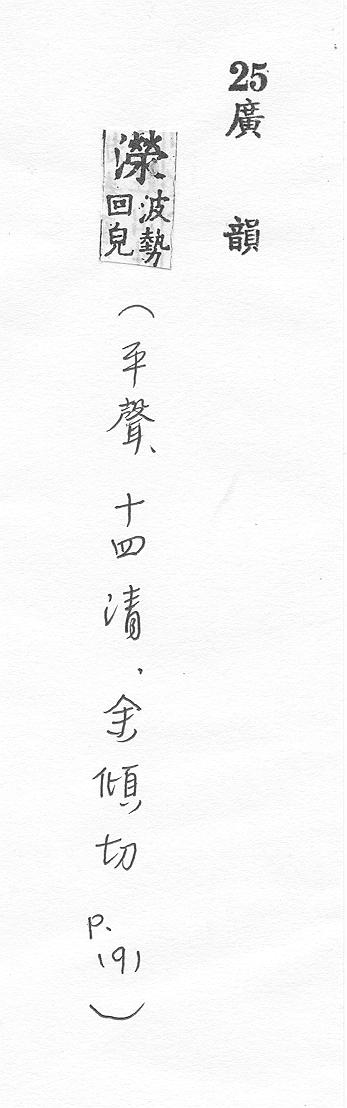 25廣韻
濴波勢回皃
(平聲、十四清,余傾切 p.191)